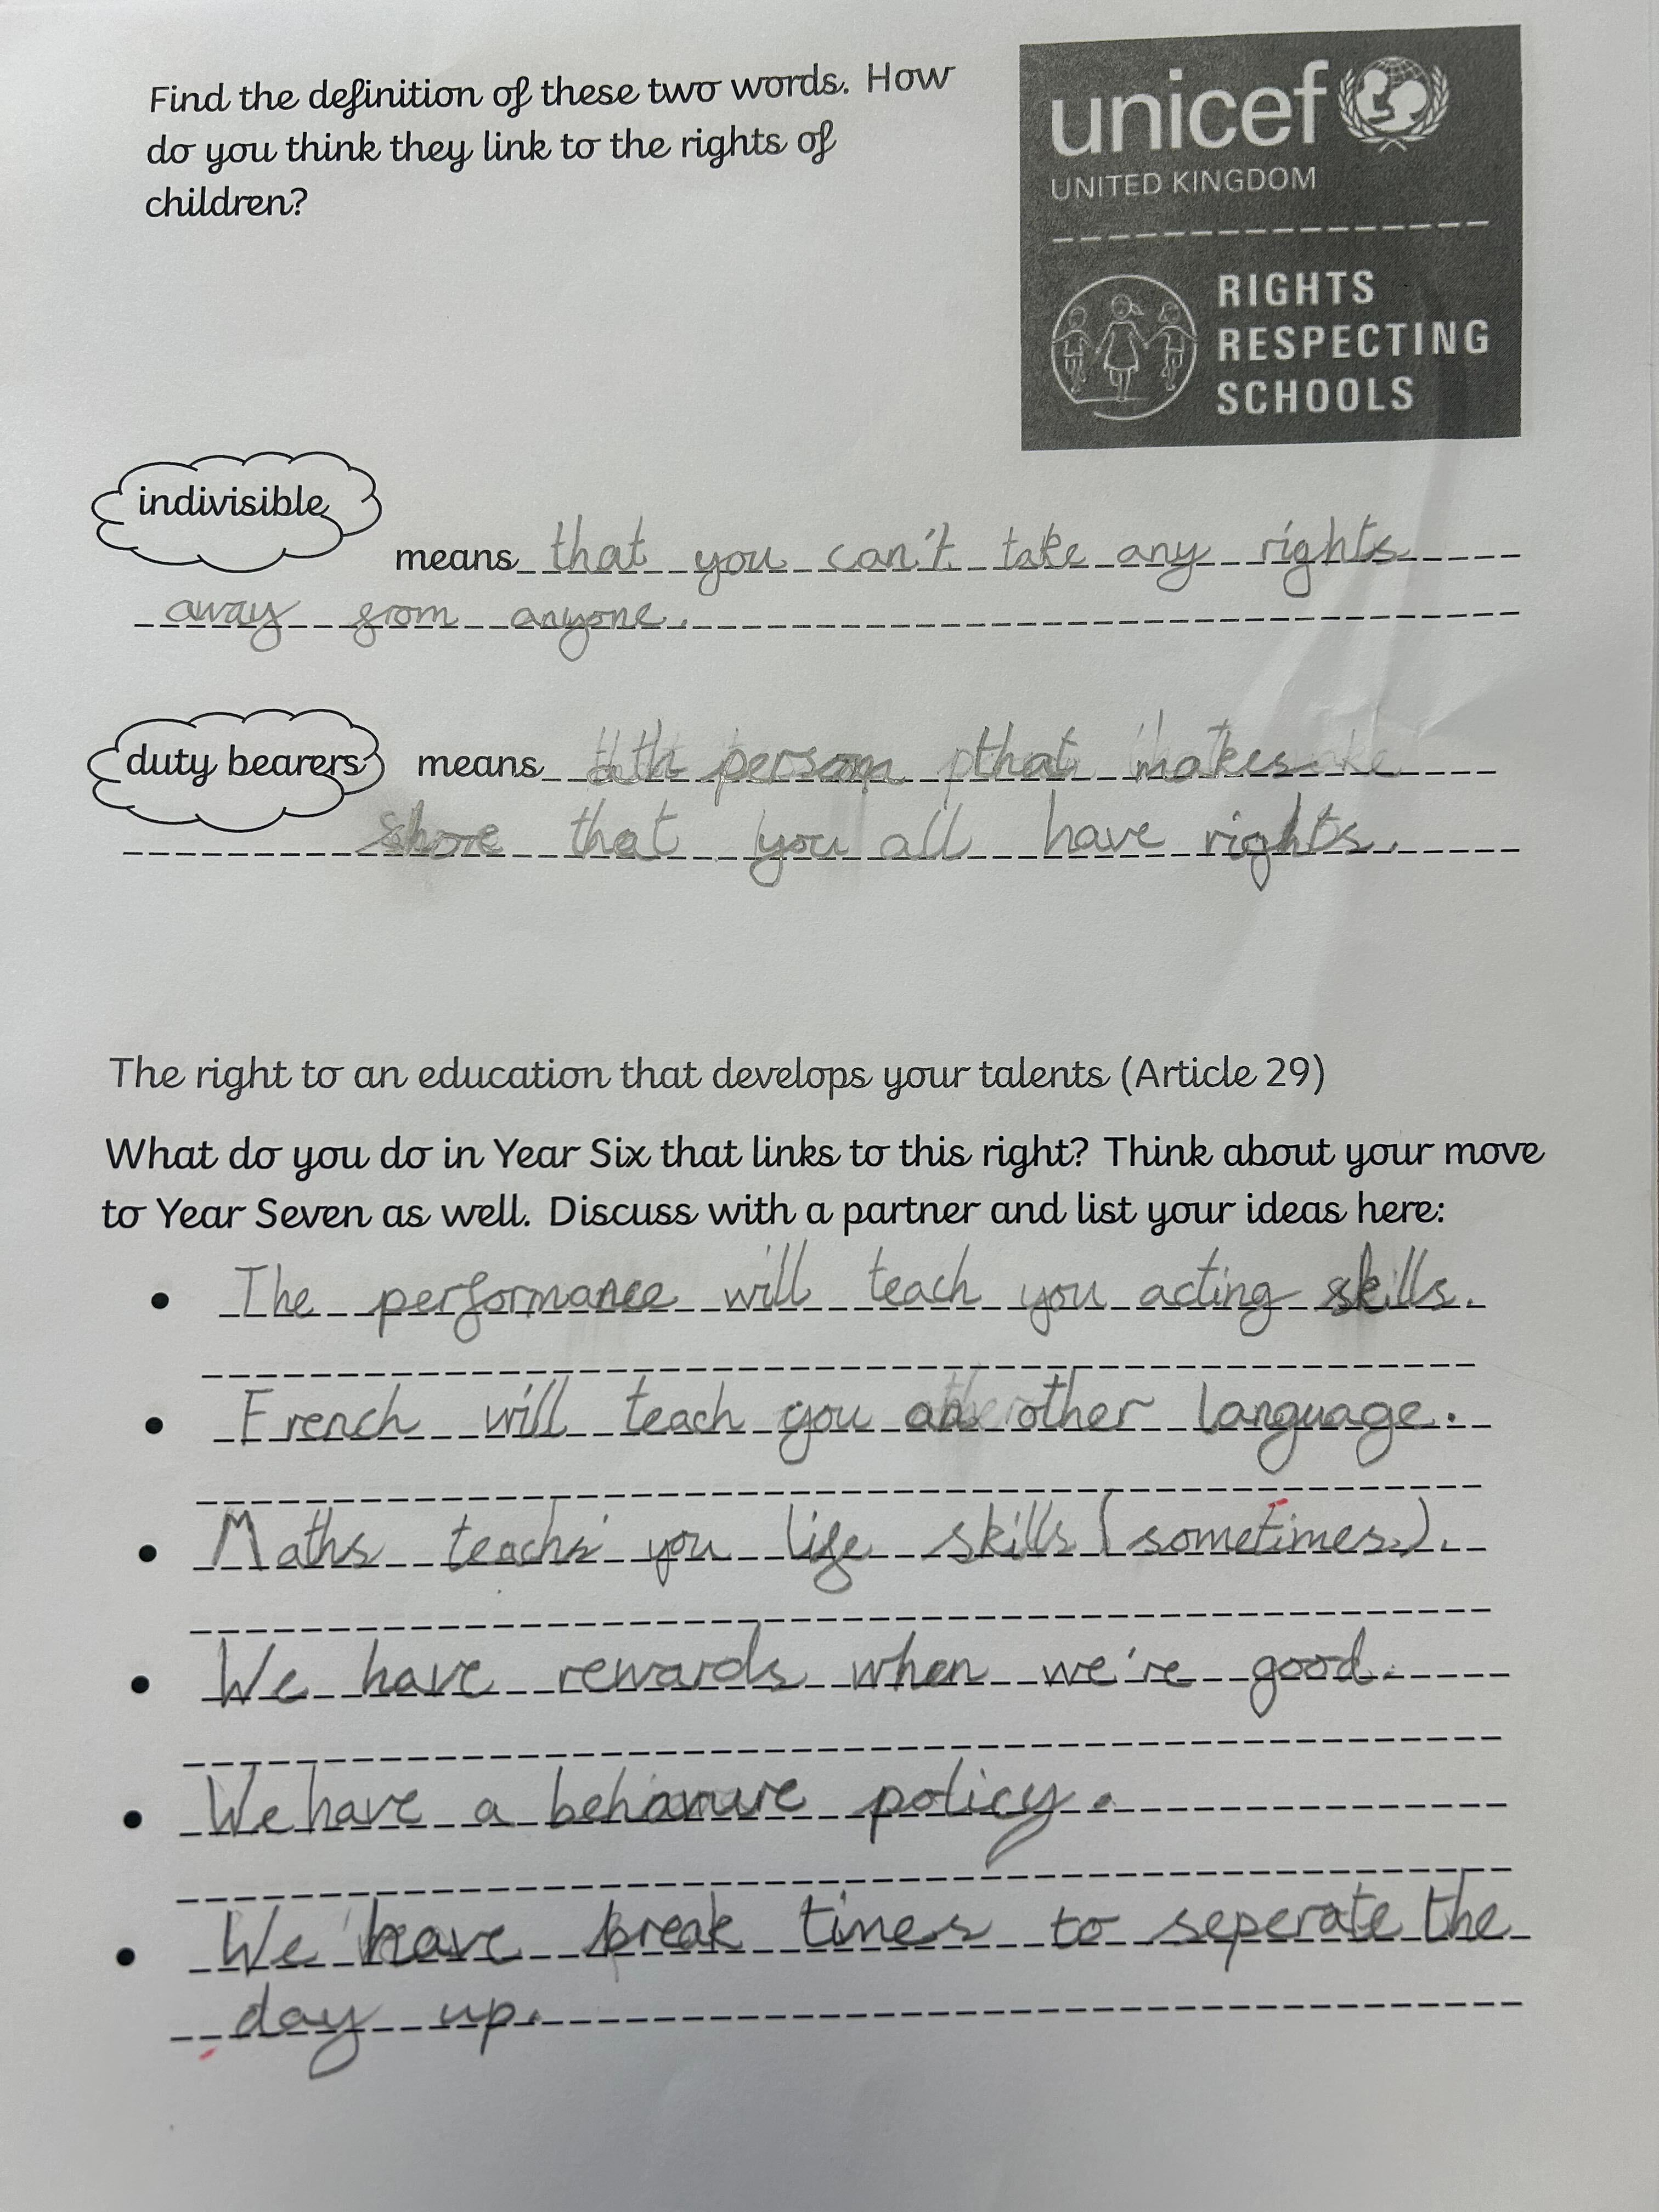 Find the definition of these two words. How
do you think they link to the rights of
children?
unicef
UNITED KINGDOM
RIGHTS
RESPECTING
SCHOOLS
indivisible
means that you can't take any rights
away from anyone.
duty bearers means person that makes
shore that you all have rights.
The right to an education that develops your talents (Article 29)
What do you do in Year Six that links to this right? Think about your move
to Year Seven as well. Discuss with a partner and list your ideas here:
• The performance will teach you acting skills.
• French will teach you an other language.
• Maths teachs you life skills (sometimes).
• We have rewards when we're good.
• We have a policy.
• We have break times to seperate the
day up.